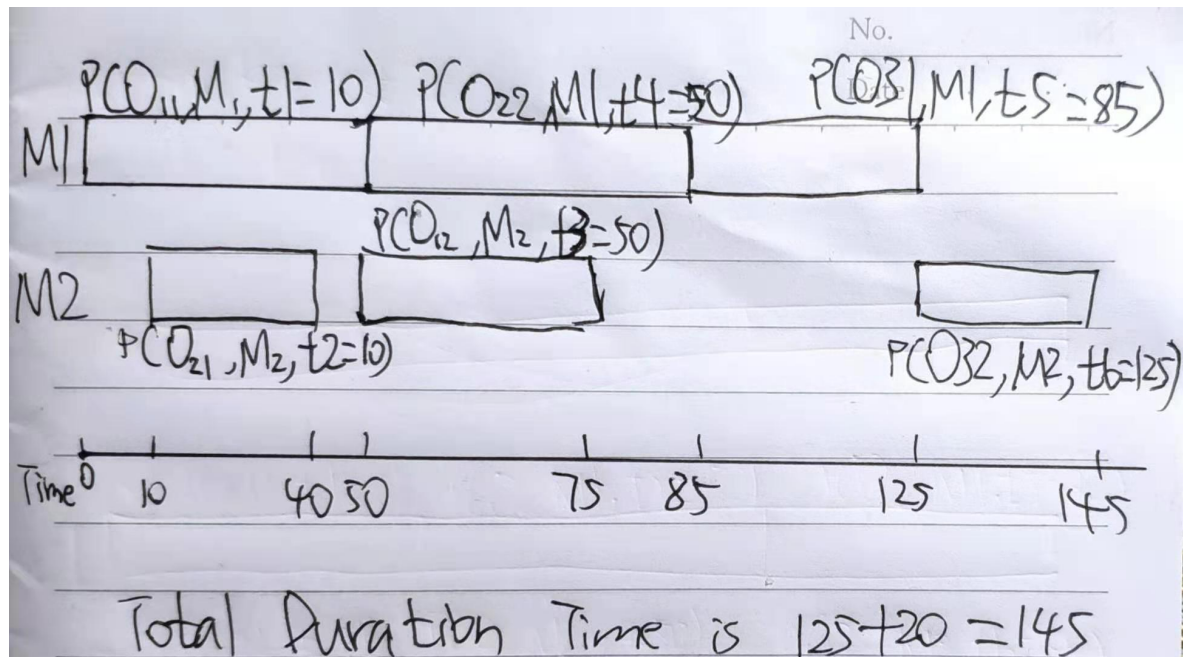 No.
Date
P(O11,M1,t1=10) P(O22,M1,t4=50) P(O31,M1,t5=85)
M1
P(O12,M2,t3=50)
M2
P(O21,M2,t2=10) P(O32,M2,t6=125)
Time 0 10 40 50 75 85 125 145
Total Duration Time is 125+20=145